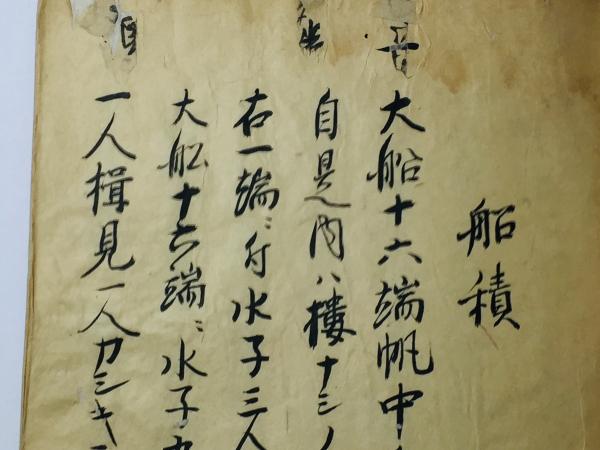 船積
大船十六端帆中
自是内ハ櫓十三ノ
右一端ニ付水子三人
大船十六端ニ水子
一人楫見一人カシキ